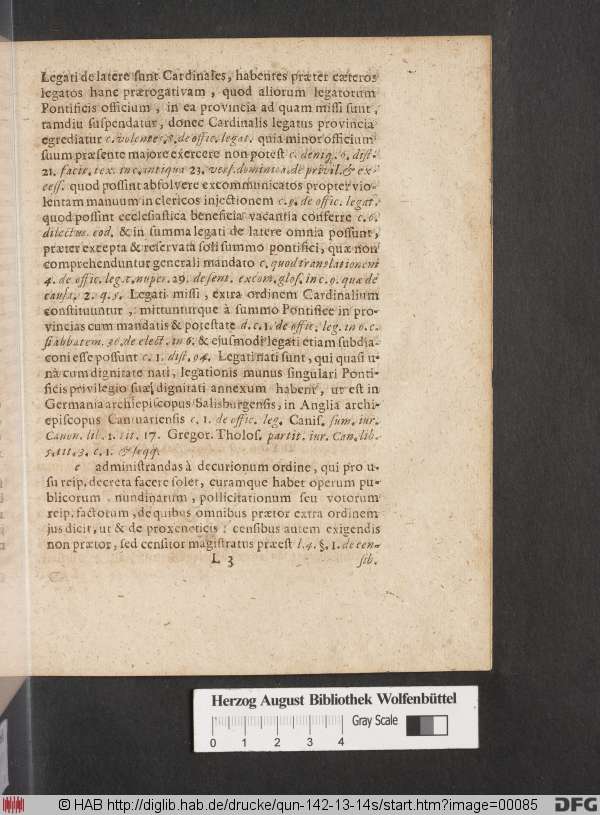 Legati de latere sunt Cardinales, habentes præter cæteros
legatos hanc prærogativam, quod aliorum legatorum
Pontificis officium, in ea provincia ad quam missi sunt,
tamdiu suspendatur, donec Cardinalis legatus provincia
egrediatur c. volentes, 8. de offic. legat. quia minor officium
suum præsente majore exercere non potest c. deniq. 6. dist.
21. facit, tex. in c. antiqua 23. vers. dominica. de privil. & ex-
cess. quod possint absolvere excommunicatos propter vio-
lentam manuum in clericos injectionem c. 9. de offic. legat.
quod possint ecclesiastica beneficia vacantia conferre c. 6.
dilectus. eod. & in summa legati de latere omnia possunt,
præter excepta & reservata soli summo pontifici, quæ non
comprehenduntur generali mandato c. quod translationem
4. de offic. legat. nuper. 29. de sent. excom. glos. in c. 9. quæ de
causa. 2. q. 5. Legati missi, extra ordinem Cardinalium
constituuntur, mittunturque à summo Pontifice in pro-
vincias cum mandatis & potestate d. c. 1. de offic. leg. in 6. c.
si abbatem. 36. de elect. in 6. & ejusmodi legati etiam subdia-
coni esse possunt c. 1. dist. 94. Legati nati sunt, qui quasi u-
nà cum dignitate nati, legationis munus singulari Ponti-
ficis privilegio suæ dignitati annexum habent, ut est in
Germania archiepiscopus Salisburgensis, in Anglia archi-
episcopus Cantuariensis c. 1. de offic. leg. Canis. sum. iur.
Canon. lib. 1. tit. 17. Gregor. Tholos. partit. iur. Can. lib.
5. tit. 3. c. 1. & seqq.
e administrandas à decurionum ordine, qui pro u-
su reip. decreta facere solet, curamque habet operum pu-
blicorum nundinarum, pollicitationum seu votorum
reip. factorum, de quibus omnibus prætor extra ordinem
jus dicit, ut & de proxeneticis: censibus autem exigendis
non prætor, sed censitor magistratus præest l. 4. §. 1. de cen-
L 3 sib.
Herzog August Bibliothek Wolfenbüttel
Gray Scale
0 1 2 3 4
© HAB http://diglib.hab.de/drucke/qun-142-13-14s/start.htm?image=00085
DFG